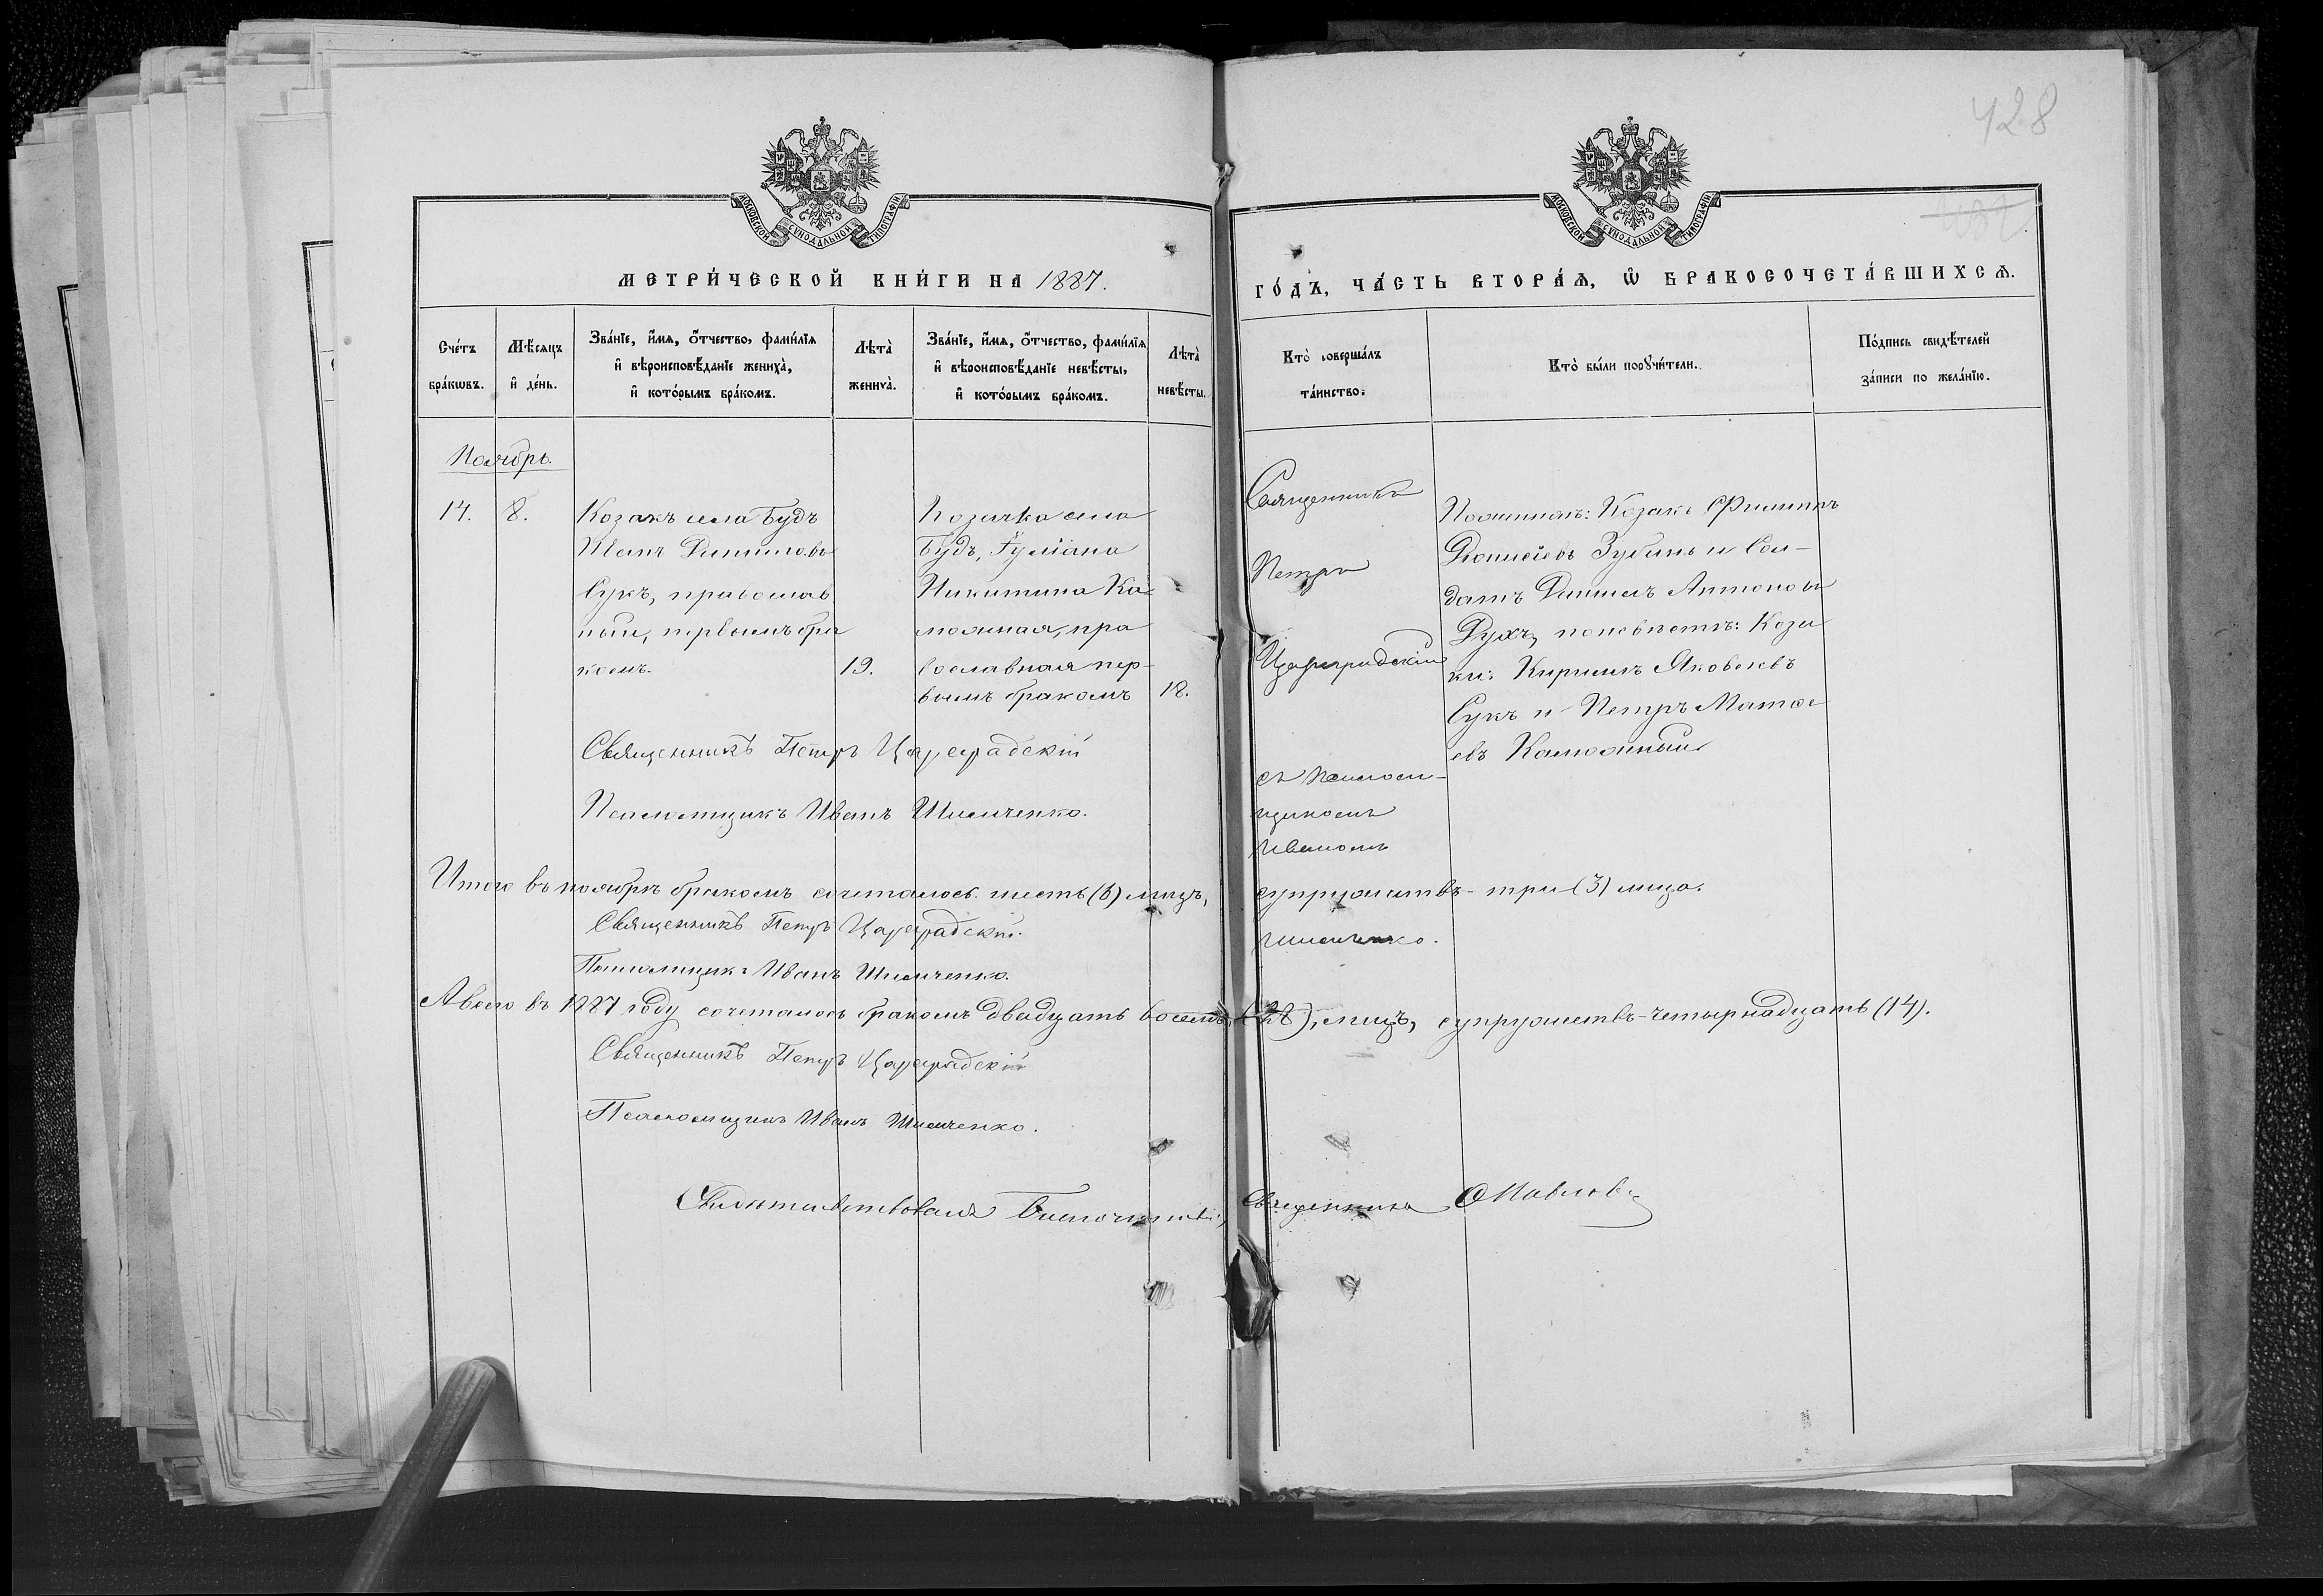 428
МОСКОВСКОЙ СѴНОДАЛЬНОЙ ТИПОГРАФІИ
МОСКОВСКОЙ СѴНОДАЛЬНОЙ ТИПОГРАФІИ
МЕТРИ́ЧЕСКОЙ КНИ́ГИ НА 1887.
ГО́ДЪ, ЧА́СТЬ ВТОРА́Ѧ, Ѡ҆ БРАКОСОЧЕТА́ВШИХСѦ.
Сче́тъ бра́кѡвъ.
Мѣ́сяцъ и҆ де́нь.
Зва́нїе, и҆́мѧ, о҆́тчество, фами́лїѧ
и҆ вѣроисповѣ́данїе жениха̀,
и҆ кото́рымъ бра́комъ.
Лѣта̀ жениха̀.
Зва́нїе, и҆́мѧ, о҆́тчество, фами́лїѧ
и҆ вѣроисповѣ́данїе невѣ́сты,
и҆ кото́рымъ бра́комъ.
Лѣта̀ невѣ́сты.
Кто̀ соверша́лъ
та́инство.
Кто̀ бы́ли порꙋчи́тели.
По́дпись свидѣ́телей
за́писи по жела́нїю.
Ноябрь.
14.
8.
Козакъ села Будъ
Иванъ Даниловъ
Сукъ, православ
ный, первымъ бра
комъ.
19.
Козачка села
Будъ, Іуліана
Никитина Ка-
мятная, пра
вославная пер-
вымъ бракомъ
18.
Священникъ
Петръ
Цареградскій
съ Псалом-
щикомъ
Иваномъ
Козакъ Филиппъ
Зубинь и Сол-
датъ Даніилъ Антоновъ
по невѣстѣ: Коза
ки: Кириллъ Яковлевъ
Сукъ и Петръ Матѳе
евъ
Священникъ Петръ Цареградскій
Псаломщикъ Иванъ Шимченко.
Итого въ ноябрѣ бракомъ сочеталось шесть (6) лицъ, супружествъ - три (3) лица.
Священникъ Петръ Цареградскій.
Шимченко.
Псаломщикъ Иванъ Шимченко.
А всего въ 1887 году сочеталось бракомъ двадцать восемь (28), лицъ, супружествъ - четырнадцать (14).
Священникъ Петръ Цареградскій
Псаломщикъ Иванъ Шимченко.
Свидѣтельствовалъ Благочинный, Священникъ Павловъ